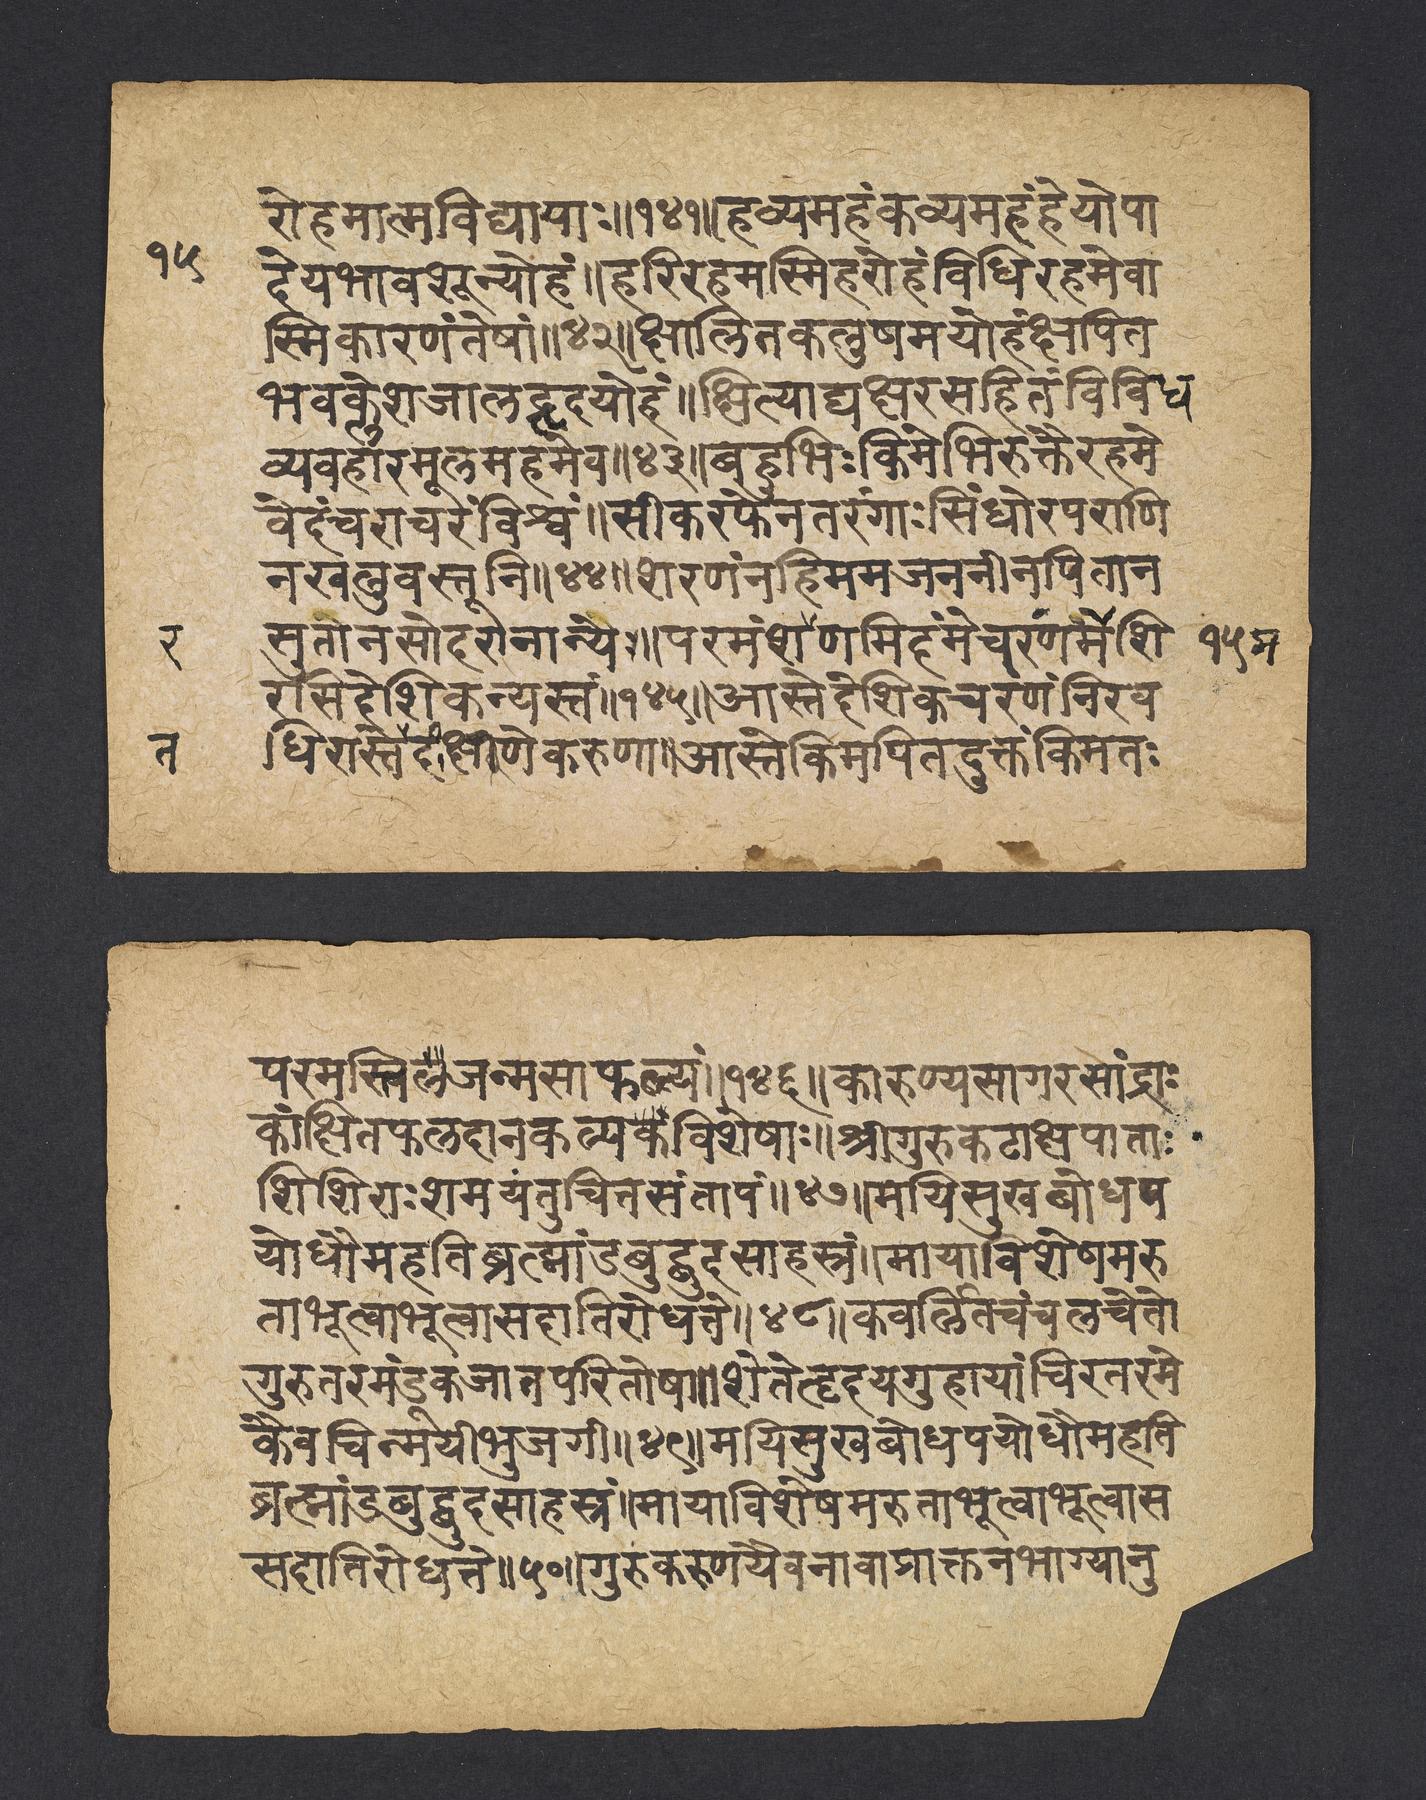 रोहमात्मविद्यायाः॥१४१॥हव्यमहंकव्यमहंहेयोपा
१५
देयभावशून्योहं॥हरिरहमस्मिहरोहंविधिरहमेवा
स्मिकारणंतेषां॥४२॥क्षालितकलुषमयोहंक्षपित
भवक्लेशजालहृदयोहं॥क्षित्याद्यक्षरसहितंविविध
व्यवहारमूलमहमेव॥४३॥बहुभिःकिमेभिरुक्तैरहमे
वेदंचराचरंविश्वं॥सीकरफेनतरंगाःसिंधोरपराणि
नखलुवस्तूनि॥४४॥शरणंनहिममजननीनपितान
सुतानसोदरानान्ये॥परमंशणमिदंमेचरणंमेशि
र
१५म
रसिदेशिकन्यस्तं॥१४५॥आस्तेदेशिकचरणंनिरव
धिरास्तेदीक्षणेकरुणा॥आस्तेकिमपितदुक्तंकिमतः
त
परमस्तिजन्मसाफल्यं॥१४६॥कारुण्यसागरसांद्राः
कांक्षितफलदानकल्पकविशेषाः॥श्रीगुरुकटाक्षपाताः
शिशिराःशमयंतुचित्तसंतापं॥४७॥मयिसुखबोधप
योधौमहतिब्रह्मांडबुद्बुदसाहस्रं॥मायाविशेषमरु
ताभूत्वाभूत्वासदातिरोधत्ते॥४८॥कवर्लितचंचलचेतो
गुरुतरमंडूकजातपरितोषा॥शेतेहृदयगुहायांचिरतरमे
कैवचिन्मयीभुजगी॥४९॥मयिसुखबोधपयोधौमहति
ब्रह्मांडबुद्बुदसाहस्रं॥मायाविशेषमरुताभूत्वाभूत्वास
सदातिरोधत्ते॥५०॥गुरुकरुणयैवनावाप्राक्तनभाग्यानु